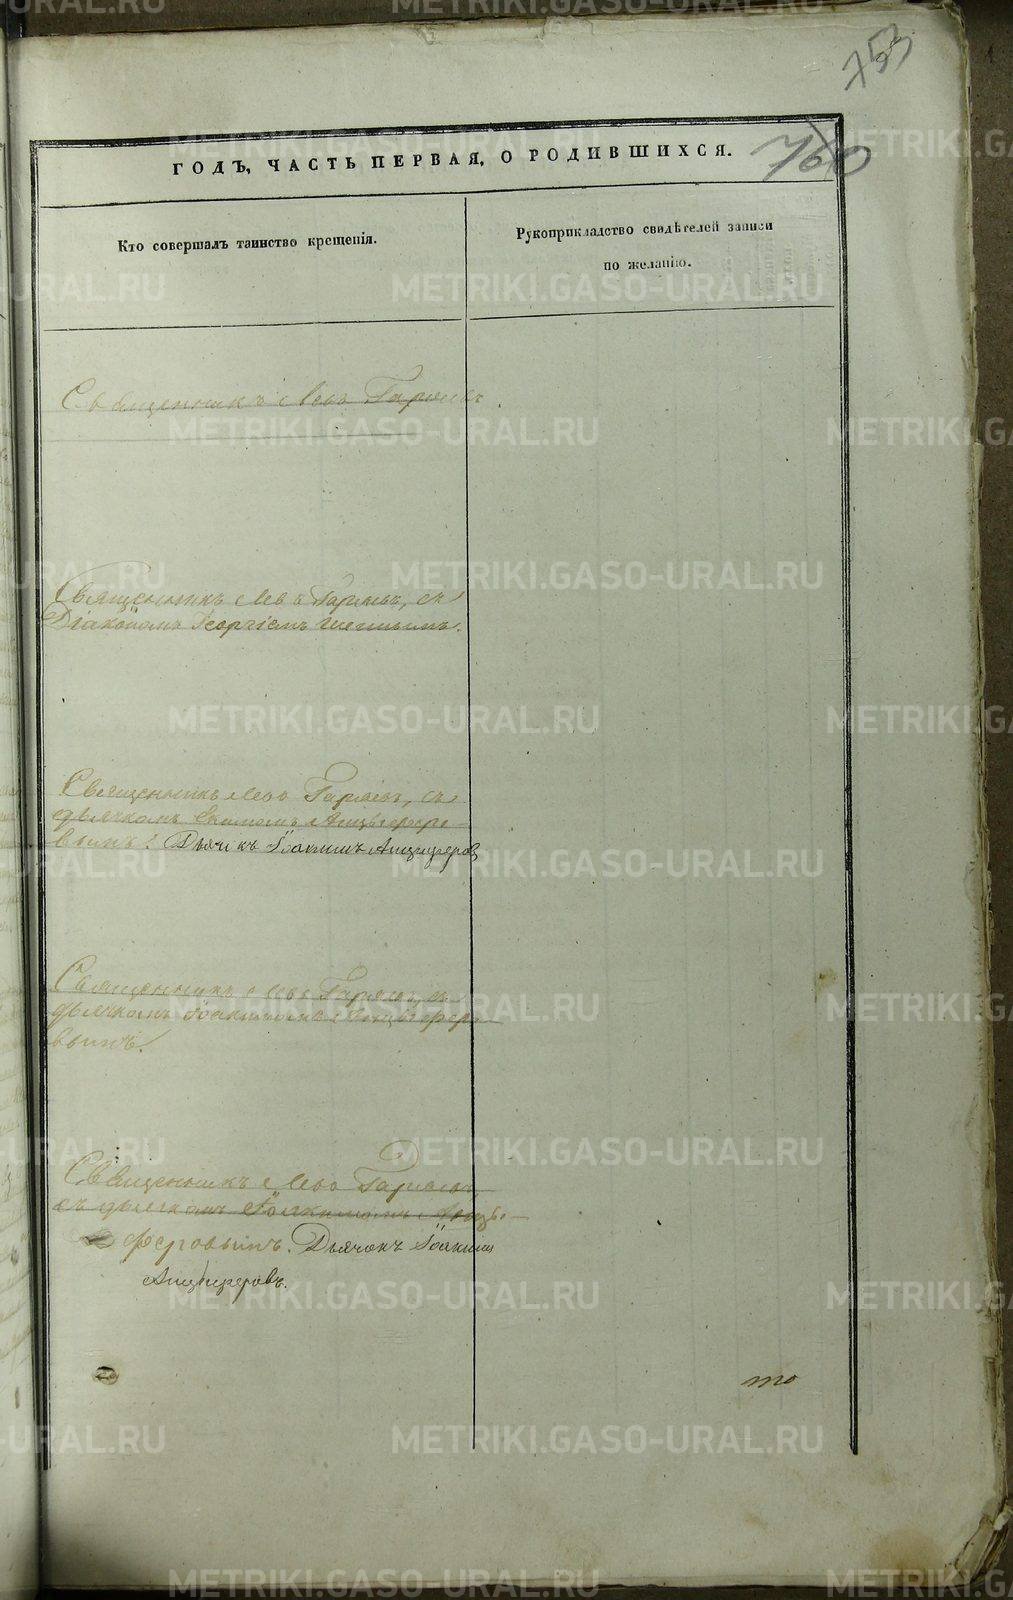 753
760
ГОДЪ, ЧАСТЬ ПЕРВАЯ, О РОДИВШИХСЯ.
Кто совершалъ таинство крещенія.
Рукоприкладство свидѣтелей записи
по желанію.
Священникъ Левъ Гаряевъ
Священникъ Левъ Гаряевъ, съ
Діакономъ Георгіемъ
Священникъ Левъ Гаряевъ, съ
дьячкомъ
вымъ. Дьячекъ Іоакимъ Анцыферов
Священникъ Левъ Гаряевъ, съ
дьячкомъ Іоакимомъ Анцыферо-
вымъ.
Священникъ Левъ Гаряевъ,
съ дьячкомъ Іоакимомъ Анцы-
феровымъ. Дьячокъ Іоакимъ
Анцыферовъ.
то
METRIKI.GASO-URAL.RU